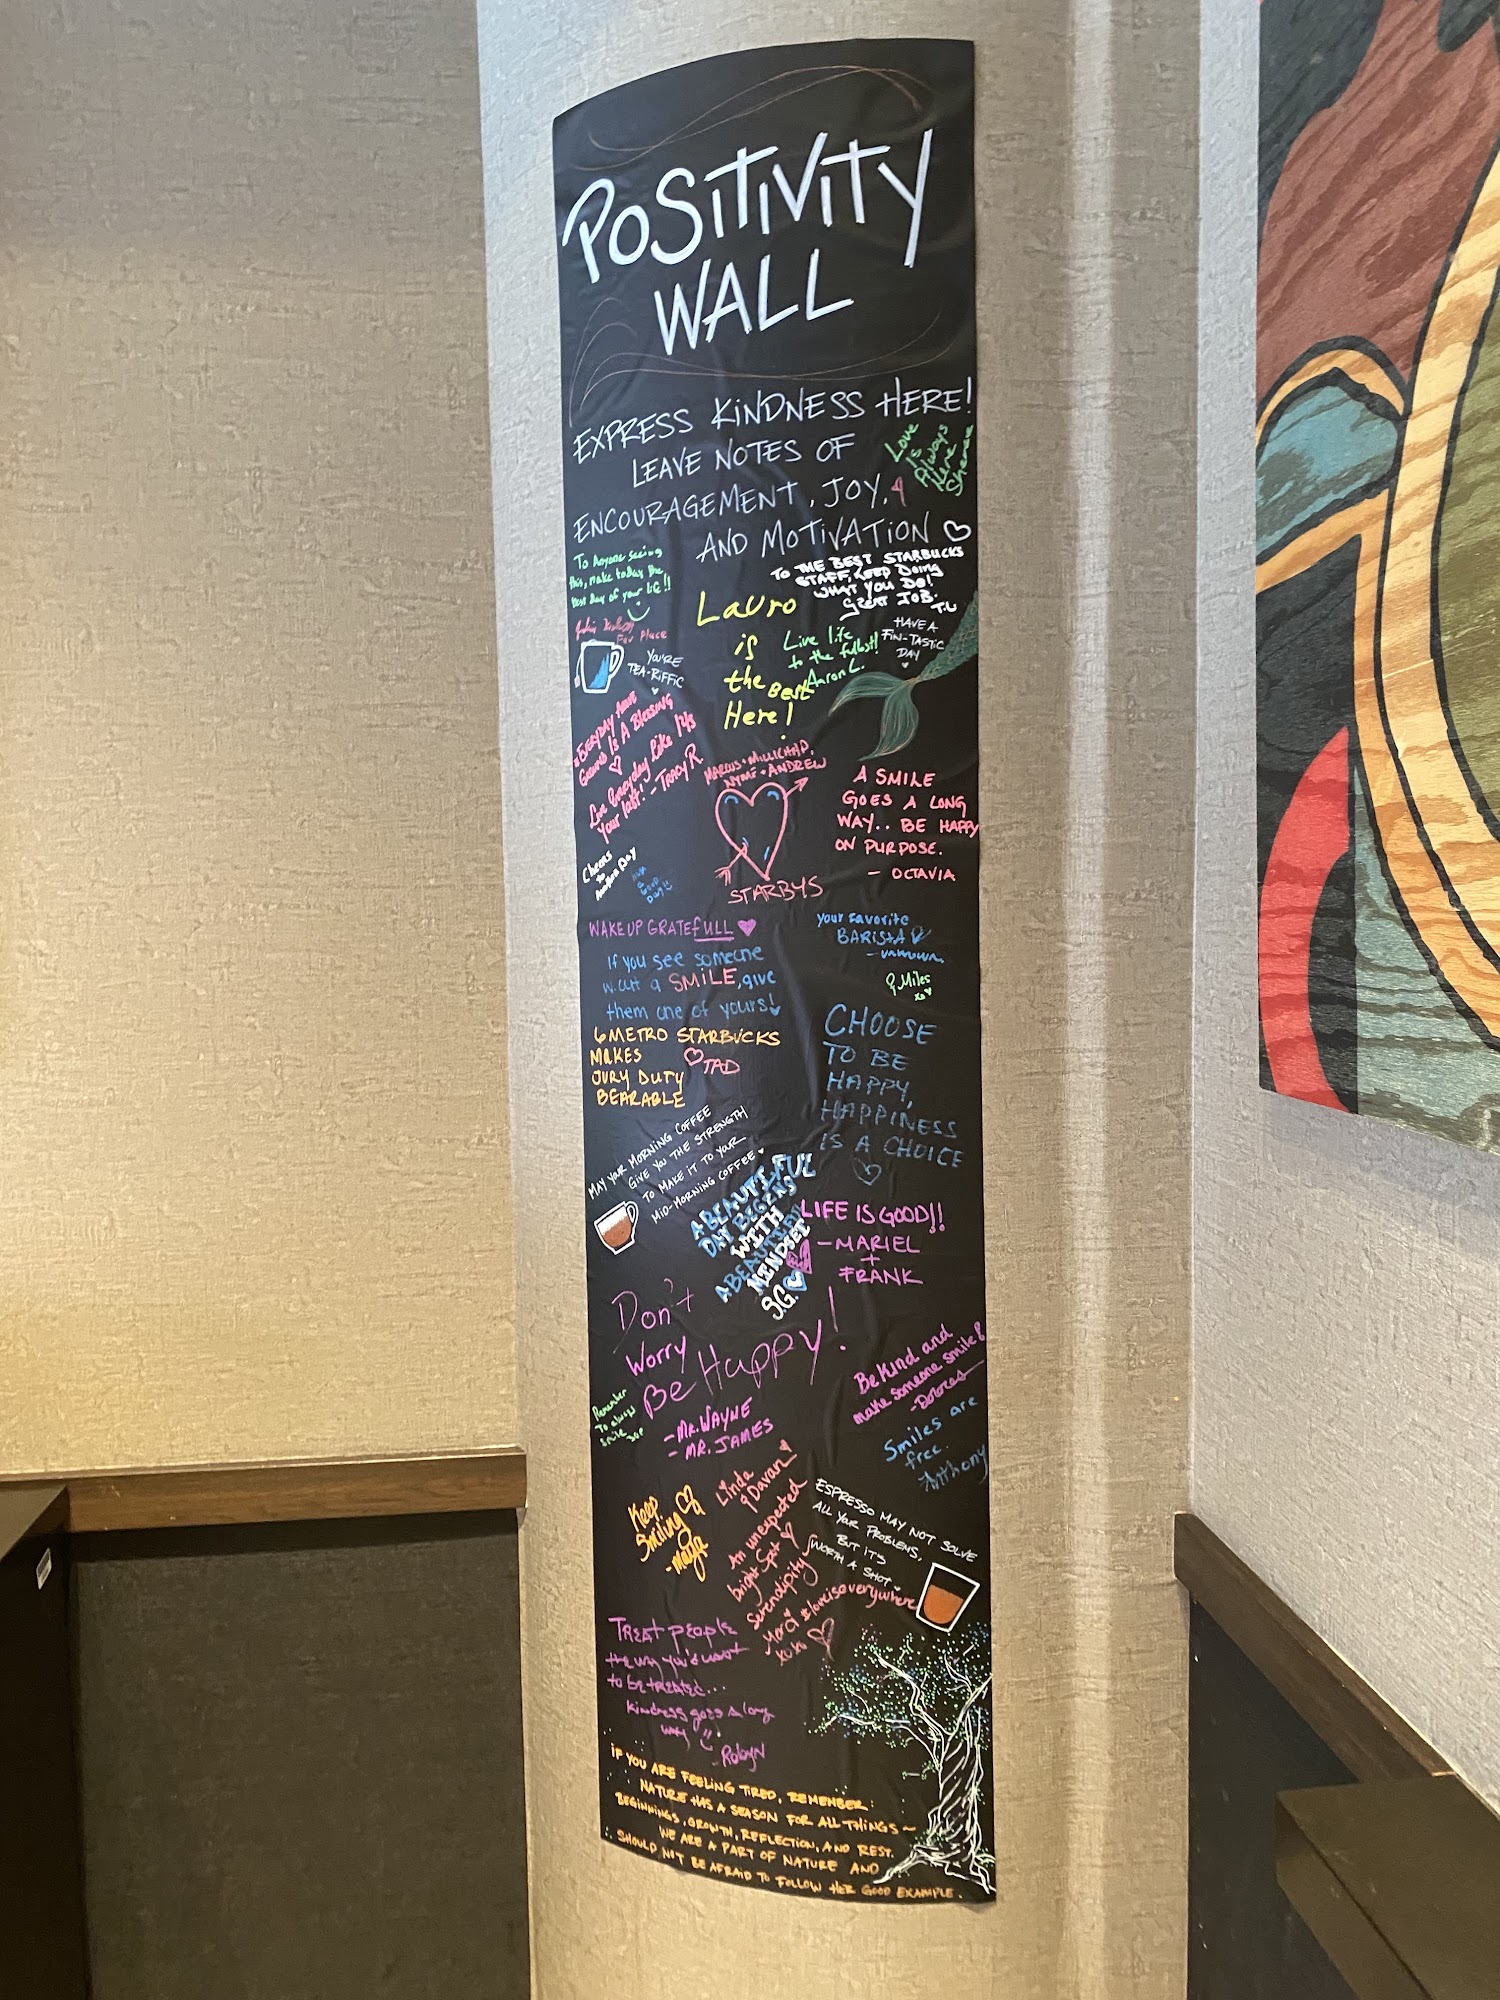 POSITIVITY
WALL
EXPRESS KINDNESS HERE!
LEAVE NOTES OF
ENCOURAGEMENT, JOY,
AND MOTIVATION
Love
is
Always
Here
To Anyone seeing
this, make today the
best day of your life!!
TO THE BEST STARBUCKS
STAFF, KEEP DOING
WHAT YOU DO!
GREAT JOB.
T.U
Lauro
is
the Best
Here!
Live life
to the fullest!
Aaron L.
HAVE A
FIN-TASTIC
DAY
Fav Place
YOU'RE
TEA-RIFFIC
EVERYDAY ABOVE
GROUND IS A BLESSING
Live Everyday Like it's
Your last! - TRACY R
MARCUS + MILLICHAP,
+ ANDREW
STARBYS
A SMILE
GOES A LONG
WAY.. BE HAPPY
ON PURPOSE.
- OCTAVIA
Cheers
to
Another Day
HAVE
A
GOOD
DAY!!
WAKE UP GRATEFULL
If you see someone
w.out a SMILE, give
them one of yours!
your favorite
BARISTA
- unknown
& Miles
xo
6 METRO STARBUCKS
MAKES
JURY DUTY
BEARABLE
TAD
CHOOSE
TO BE
HAPPY,
HAPPINESS
IS A CHOICE
MAY YOUR MORNING COFFEE
GIVE YOU THE STRENGTH
TO MAKE IT TO YOUR
MID-MORNING COFFEE
A BEAUTIFUL
DAY BEGINS
WITH
A BEAUTIFUL
MINDSET
S.G.
LIFE IS GOOD!!
- MARIEL
+
FRANK
Don't
Worry
Be Happy!
- MR. WAYNE
- MR. JAMES
Remember
To always
smile
Be Kind and
make someone smile!
- Dolores
Smiles are
free.
Anthony
Keep
Smiling
- Maya
Linda
& Davan
An unexpected
bright spot
Serendipity
Merci #loveiseverywhere
xoxo
ESPRESSO MAY NOT SOLVE
ALL YOUR PROBLEMS,
BUT IT'S
WORTH A SHOT.
TREAT PEOPLE
the way you'd want
to be treated...
kindness goes a long
way
- Robyn
IF YOU ARE FEELING TIRED, REMEMBER
NATURE HAS A SEASON FOR ALL THINGS ~
BEGINNINGS, GROWTH, REFLECTION, AND REST.
WE ARE A PART OF NATURE AND
SHOULD NOT BE AFRAID TO FOLLOW HER GOOD EXAMPLE.